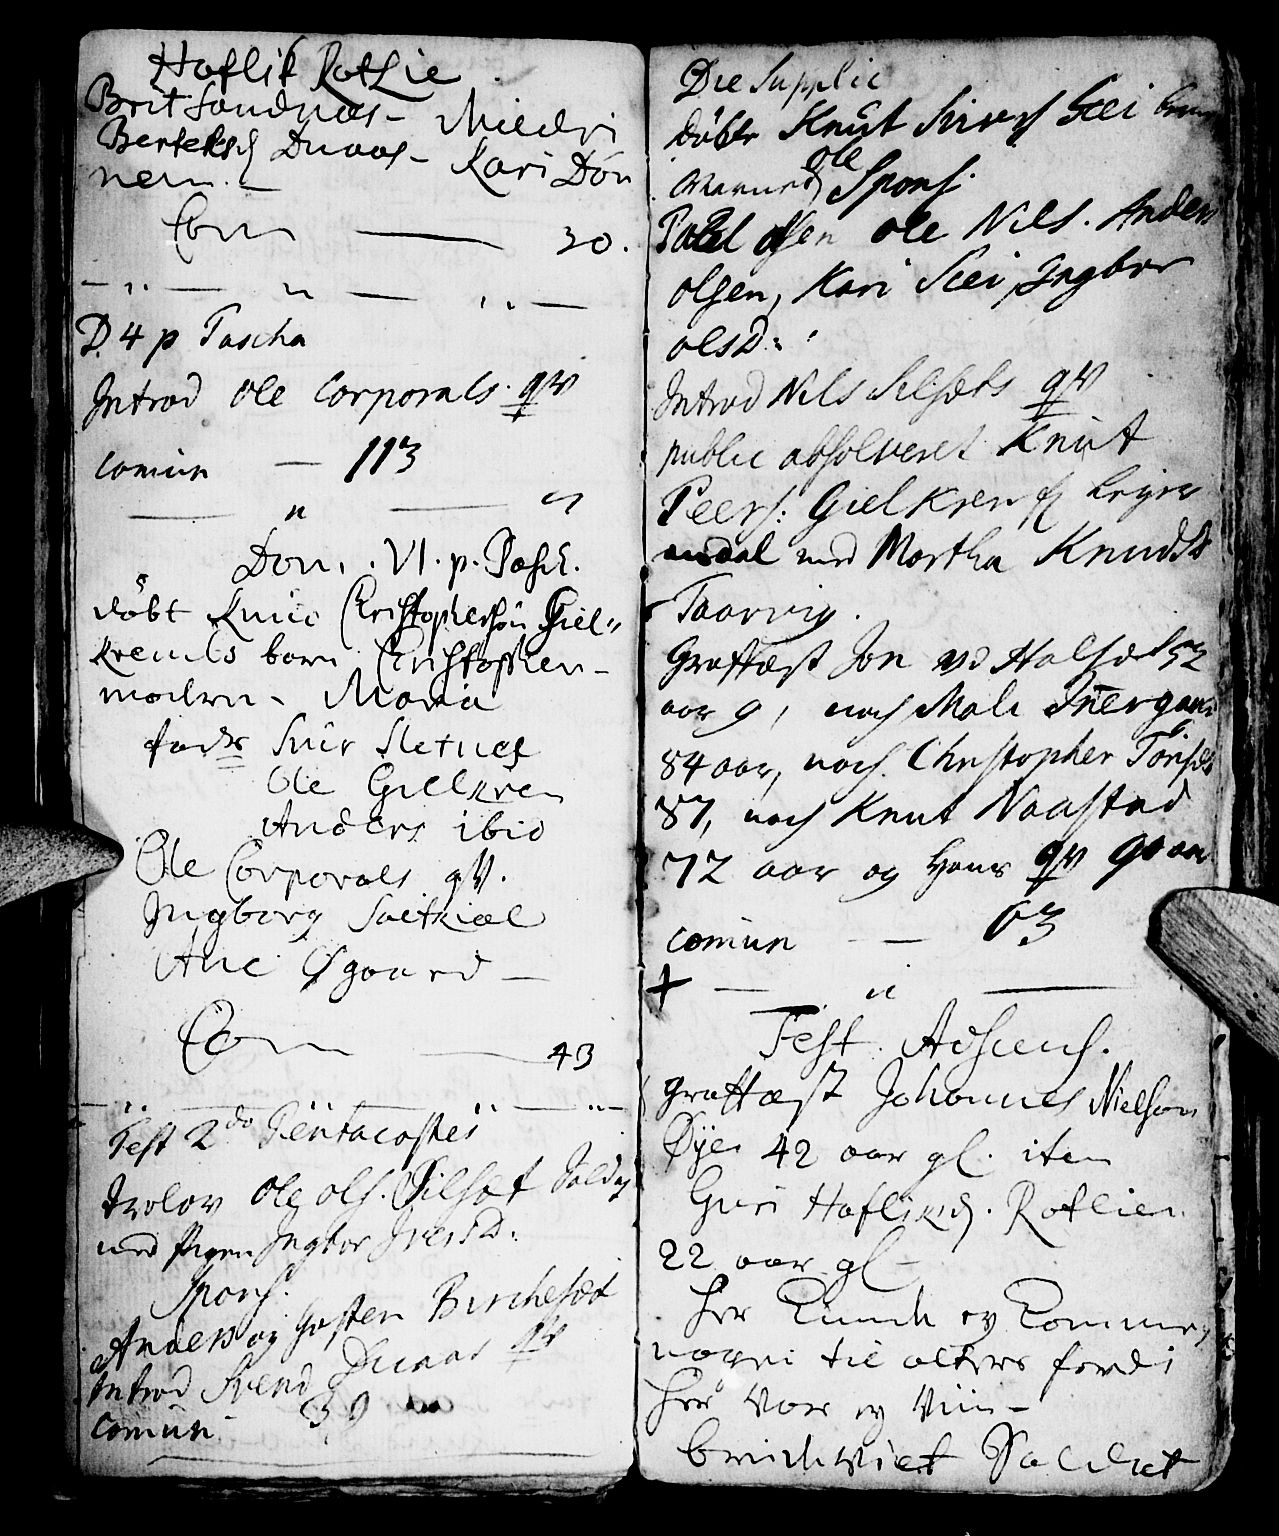 Haflik Rotlie
Brit Sandnæs - Miedri
Berteksd Duaas - Kari Dön
nem. -
Com — 30.
D. 4 p Pascha
Introd Ole Corporals qv
comun — 113
— " — "
Dom. VI. p. Pasch.
döbt Knud Christophersön Giel"
krends barn Christopher -
modren - Maria
fadr Siur Sletnes
Ole Gielkren
Anders ibid
Ole Corporals qv.
Ingborg Sætkiæl
Ane Øgaard -
Com — 43
Fest 2do Pentacostes
trolov Ole Ols. Silsæt Soldat
med pigen Ingbor Iversd:
Spons.
Anders og Josten Birchesæt
Introd Svend Duaas qv
comun 39
Die Supplic
döbte Knut Sivers Scei barn
Ole Spons.
Poel Olsen Ole Nils. Anders
Olsen, Kari Scei Ingbor
olsd:
Introd Nils Silsets qv
public absolveret Knut
Peers: Gielkren
med Martha Knudsd
Taarvig.
Graffæst Jon vd Halset 52
aar g, noch Mali
84 aar, noch Christopher
87, noch Knut Naastad
72 aar og Hans qv 90 aar
comun — 63
+ — " —
Fest. Adscens.
graffæst Johannes Nielson
Øyen 42 aar gl. item
Guri Haflikd. Rotlien
22 aar gl -
her Kunde ey Komme
nogen til alters fordi
her var ey Viin -